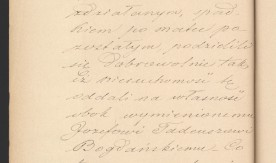 zdziałanym, spad
kiem po matce po
zostałym, podzielili
się dobrowolnie tak,
iż nieruchomość tę
oddali na własność
obok wymienionemu
Józefowi Tadeuszowi
Bogdańskiemu. Co